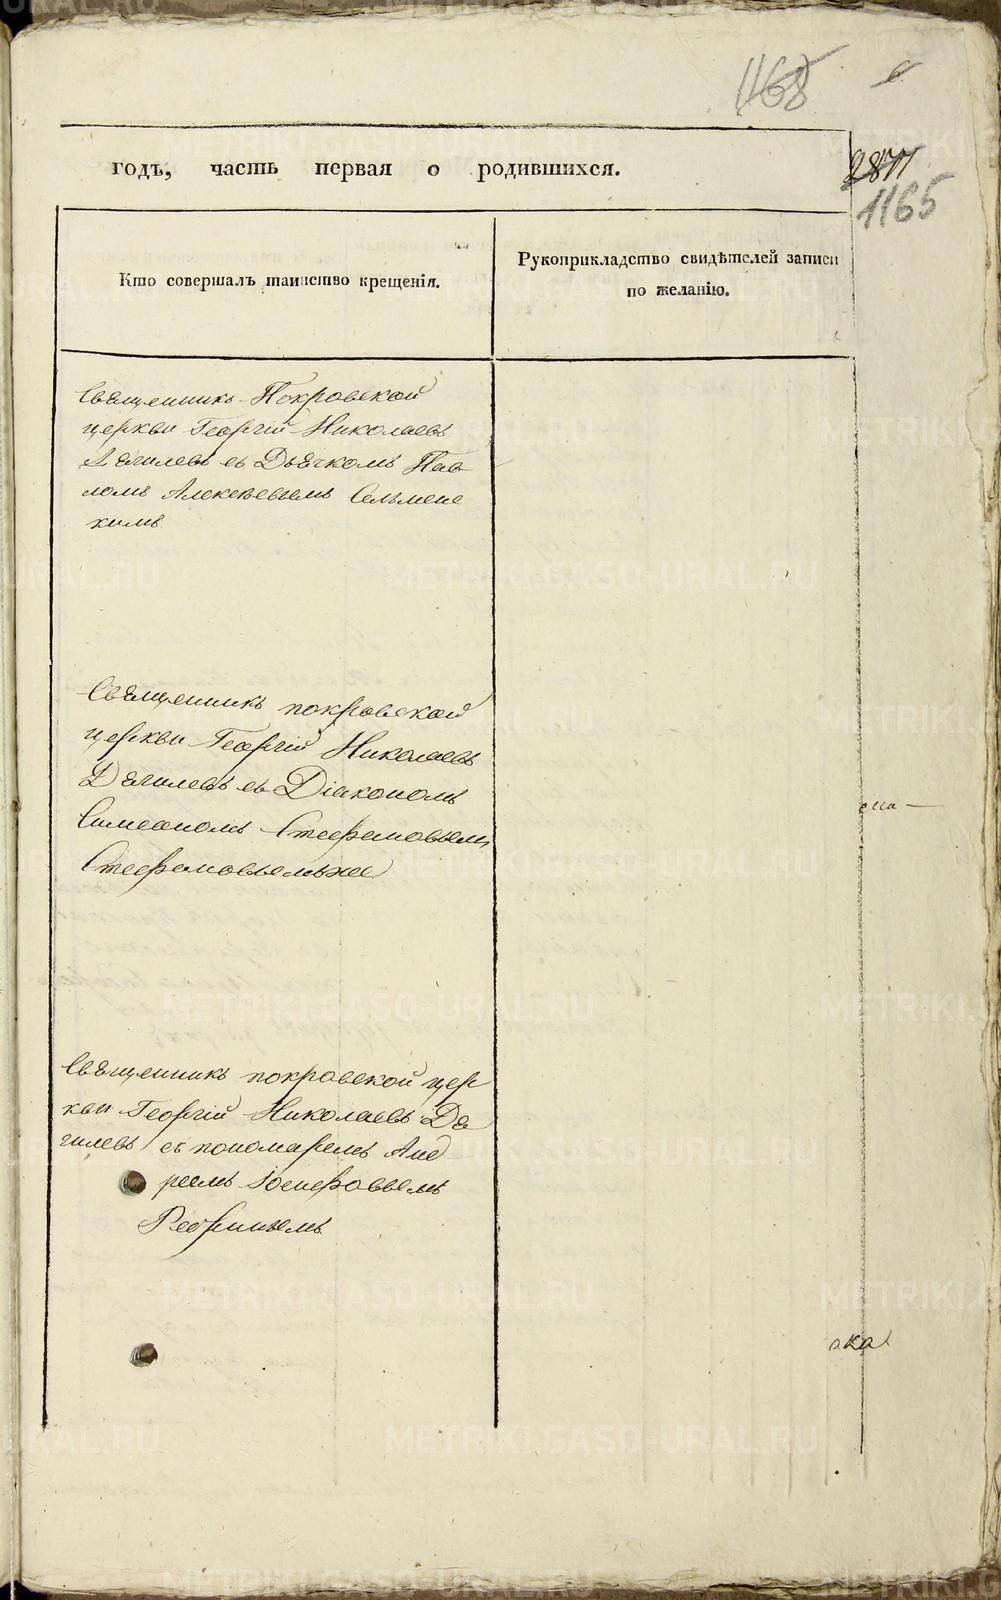 1168
2877
1165
годъ, часть первая о родившихся.
Кто совершалъ таинство крещенія.
Рукоприкладство свидѣтелей записи
по желанію.
Священникъ Покровской
церкви Георгій Николаевъ
Дягилевъ съ Дьячкомъ Пав
ломъ Алексѣевымъ Сельменс
кимъ
Священникъ покровской
церкви Георгій Николаевъ
Дягилевъ съ Діакономъ
Симеономъ Стефановымъ
Стефановымъ же
Священникъ покровской цер
кви Георгій Николаевъ Дя
гилевъ съ пономаремъ Анд
реемъ Іосифовымъ
ска
METRIKI.GASO-URAL.RU